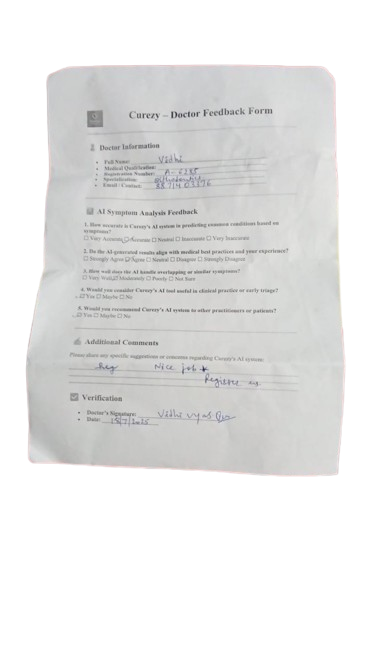 Curezy – Doctor Feedback Form
Doctor Information
• Full Name: Vidhi
• Medical Qualification:
• Registration Number: A-6285
• Specialization:
• Email / Contact:
AI Symptom Analysis Feedback
1. How accurate is Curezy's AI system in predicting common conditions based on
symptoms?
☐ Very Accurate ☑ Accurate ☐ Neutral ☐ Inaccurate ☐ Very Inaccurate
2. Do the AI-generated results align with medical best practices and your experience?
☐ Strongly Agree ☑ Agree ☐ Neutral ☐ Disagree ☐ Strongly Disagree
3. How well does the AI handle overlapping or similar symptoms?
☐ Very Well ☑ Moderately ☐ Poorly ☐ Not Sure
4. Would you consider Curezy's AI tool useful in clinical practice or early triage?
☑ Yes ☐ Maybe ☐ No
5. Would you recommend Curezy's AI system to other practitioners or patients?
☑ Yes ☐ Maybe ☐ No
Additional Comments
Please share any specific suggestions or concerns regarding Curezy's AI system:
Nice job
Verification
• Doctor's Signature: Vidhi Vyas
• Date: /7/2025